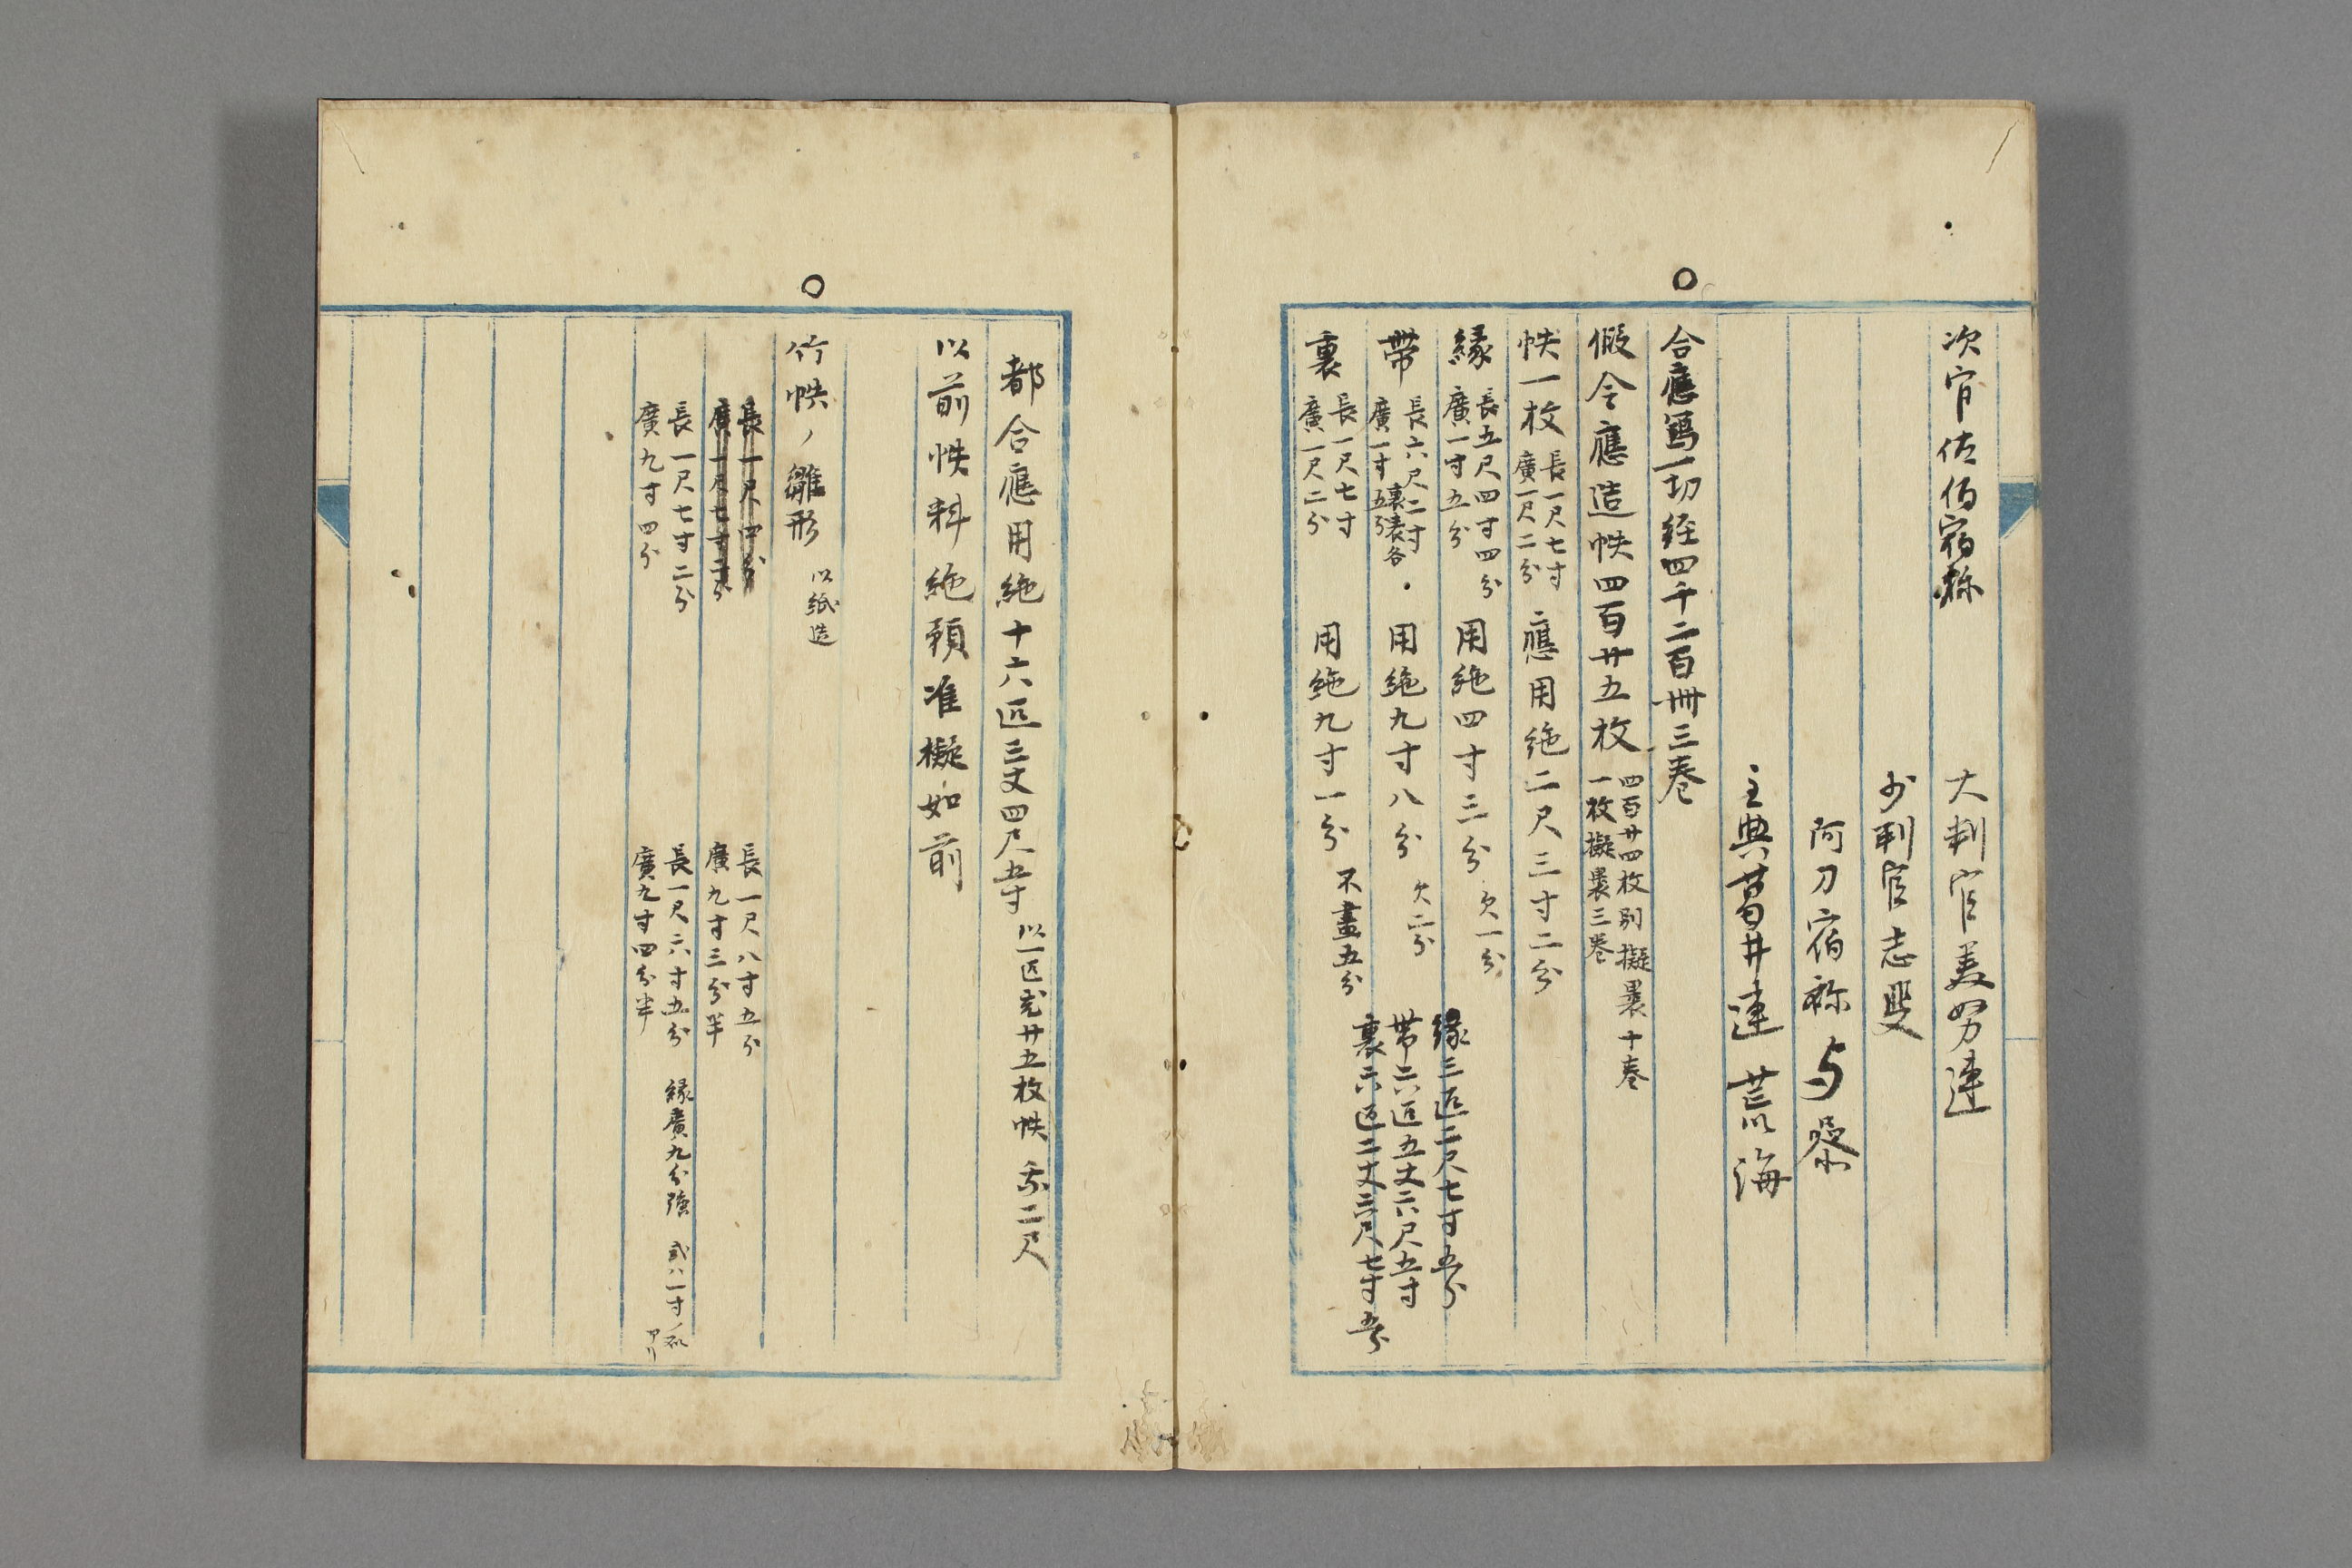 次官佐伯宿祢
大判官美努連
少判官志斐
阿刀宿祢与参
主典葛井連荒海
○
合應寫一切経四千二百卌三巻
假令應造帙四百廿五枚
四百廿四枚別擬褁十巻
一枚擬褁三巻
帙一枚
長一尺七寸
廣一尺二分
應用絁二尺三寸二分
縁
長五尺四寸四分
廣一寸五分
用絁四寸三分
欠一分
帶
長六尺二寸
廣一寸五分
裏表各
用絁九寸八分
欠二分
裏
長一尺七寸
廣一尺二分
用絁九寸一分
不盡五分
縁三匹二尺七寸五分
帶六匹五丈六尺五寸
裏六匹二丈六尺七寸五分
都合應用絁十六匹三丈四尺五寸
以一匹充廿五枚帙
二尺
以前帙料絁預准擬如前
○
竹帙ノ雛形
以紙造
長一尺四分
廣一尺七寸二分
長一尺八寸五分
廣九寸三分半
長一尺七寸二分
廣九寸四分
長一尺六寸五分
廣九寸四分半
縁廣九分強
或ハ一寸ノ
アリ